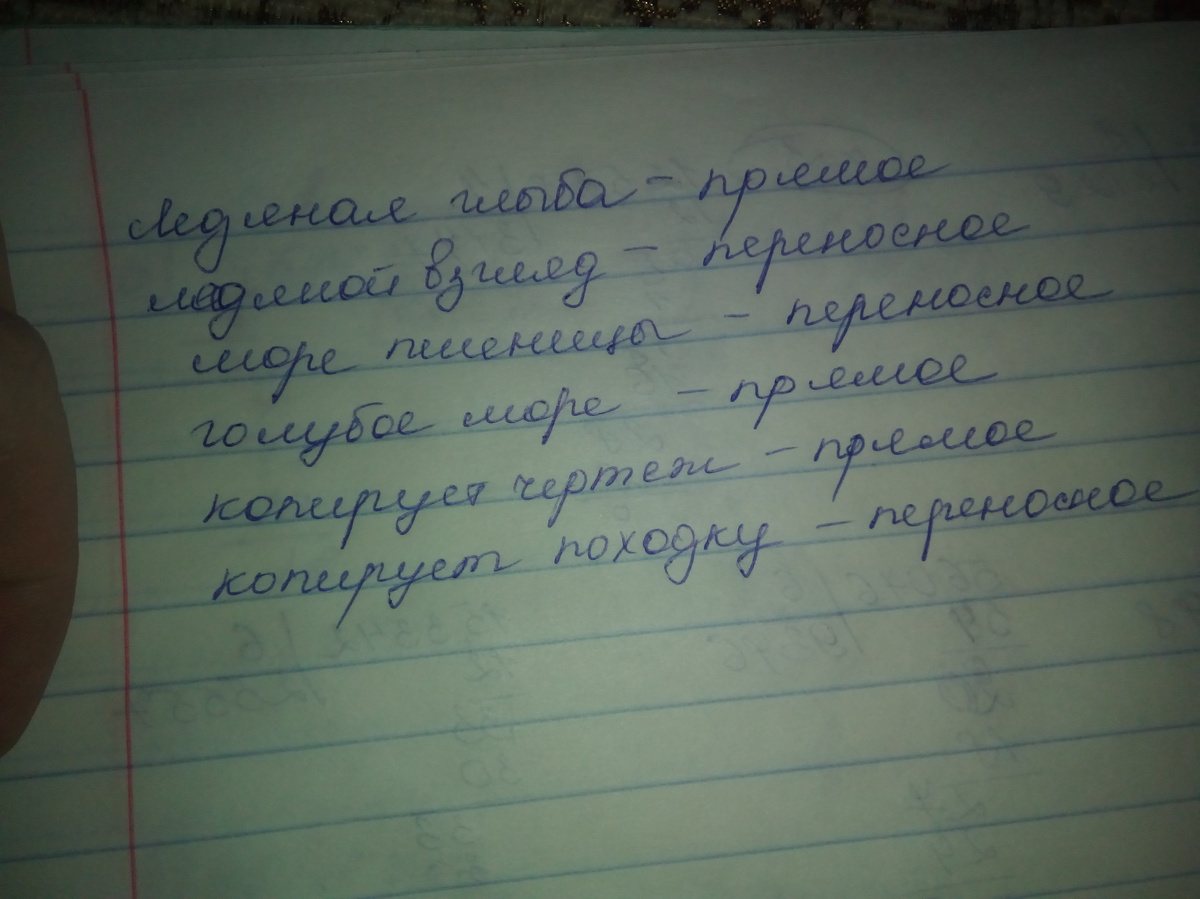 Ледяная глыба – прямое
ледяной взгляд – переносное
море пшеницы – переносное
голубое море – прямое
копирует чертеж – прямое
копирует походку – переносное